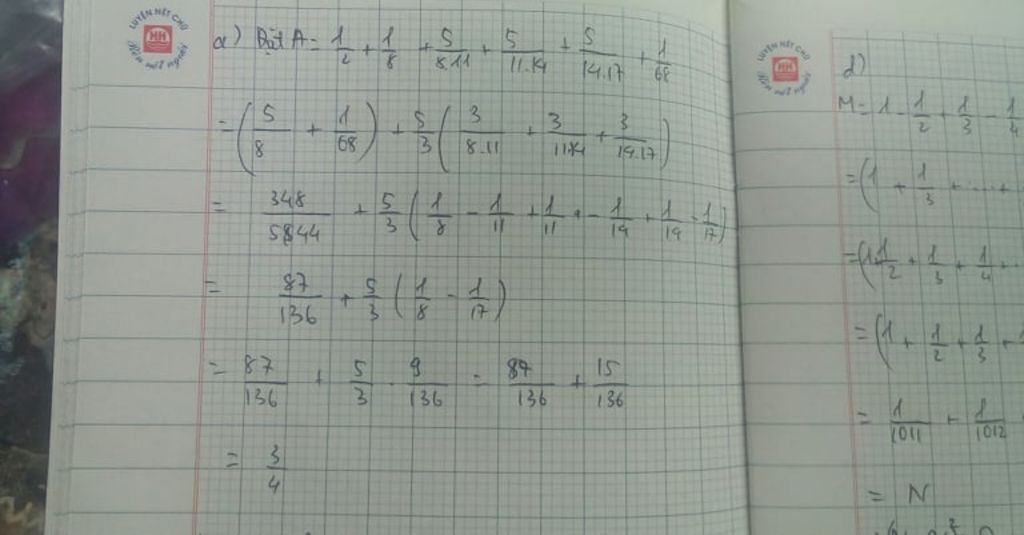 LUYỆN NÉT CHỮ
HH
Rèn nết người
a) Đặt A = 1/2 + 1/8 + 5/8.11 + 5/11.14 + 5/14.17 + 1/68
= (5/8 + 1/68) + 5/3 (3/8.11 + 3/11.14 + 3/14.17)
= 348/5844 + 5/3 (1/8 - 1/11 + 1/11 - 1/14 + 1/14 - 1/17)
= 87/136 + 5/3 (1/8 - 1/17)
= 87/136 + 5/3 . 9/136 = 87/136 + 15/136
= 3/4
LUYỆN NÉT CHỮ
HH
Rèn nết người
d)
M = 1 - 1/2 + 1/3 - 1/4
= (1 + 1/3 + ..... +
= (1 + 1/2 + 1/3 + 1/4 + ..
= (1 + 1/2 + 1/3 +
= 1/1011 + 1/1012
= N